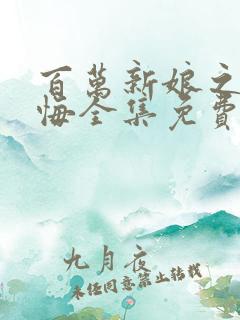 百萬新娘之
悔全集免費
九月夜
未经同意禁止转载